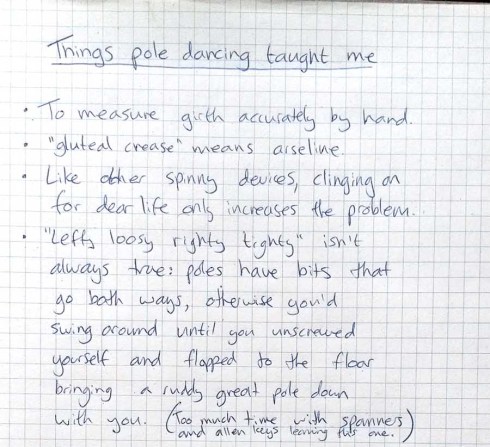 Things pole dancing taught me
• To measure girth accurately by hand.
• "gluteal crease" means arseline.
• Like other spinny devices, clinging on
for dear life only increases the problem.
• "Lefty loosy righty tighty" isn't
always true: poles have bits that
go both ways, otherwise you'd
swing around until you unscrewed
yourself and flopped to the floor
bringing a ruddy great pole down
with you. (Too much time with spanners
and allen keys learning this one.)